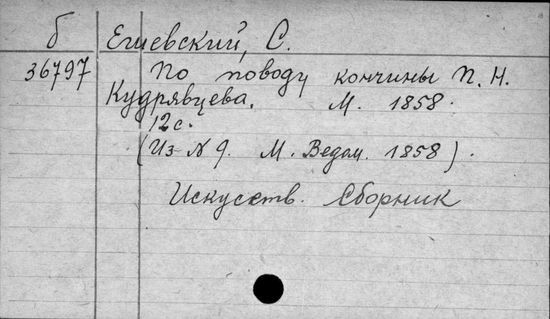 б Ешевский, С.
36797 По поводу кончины П. Н.
Кудрявцева. М. 1858.
12 с.
(Из N 9. М. Ведом. 1858).
Искусств. Сборник